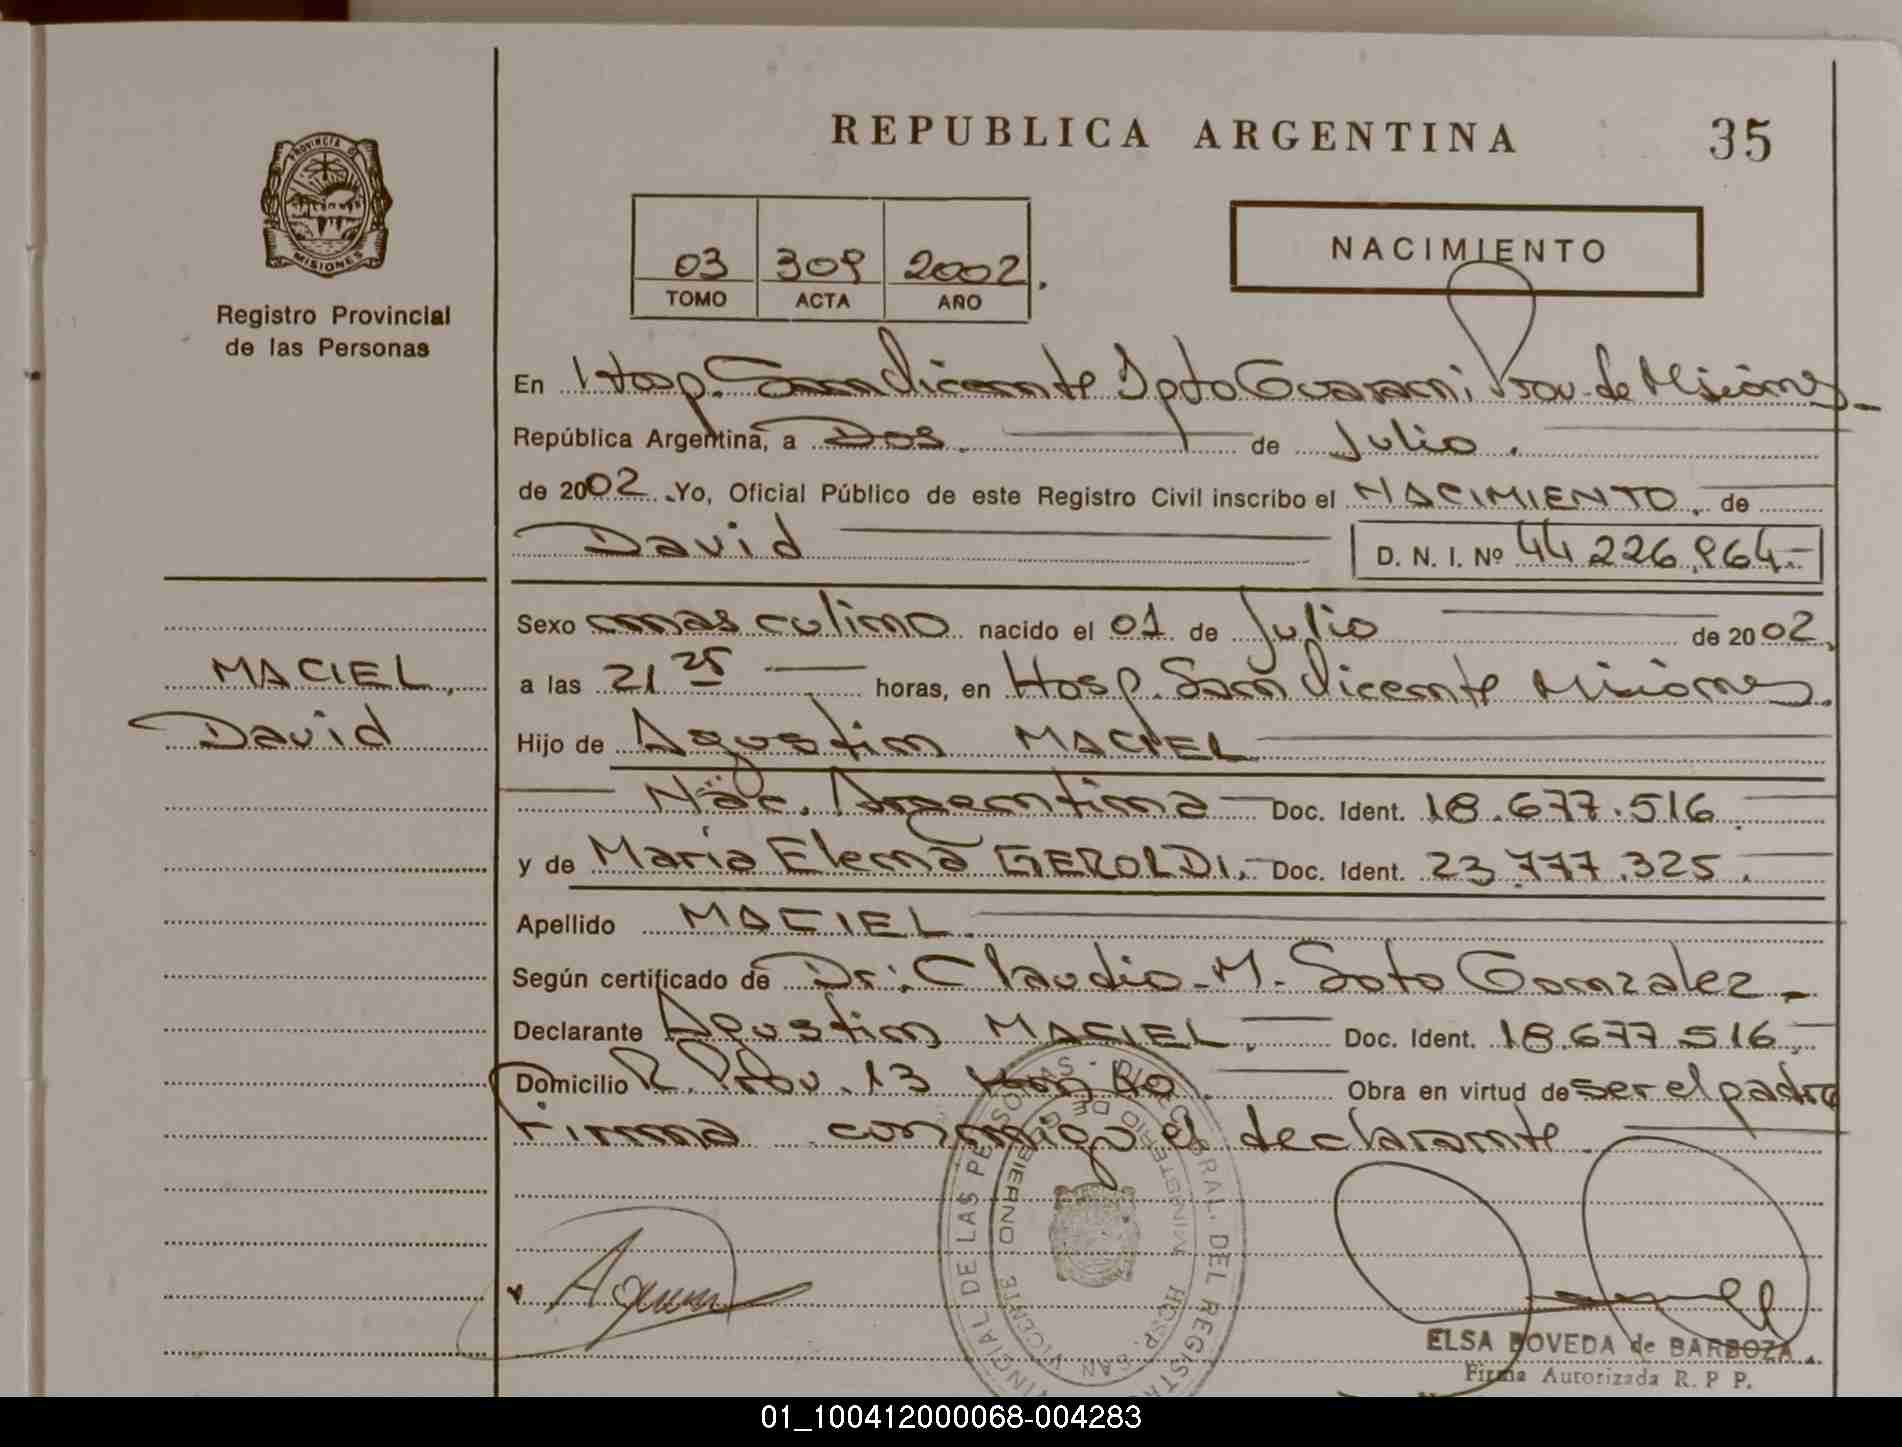 REPUBLICA ARGENTINA
35
PROVINCIA DE
MISIONES
Registro Provincial
de las Personas
03 309 2002.
TOMO ACTA AÑO
NACIMIENTO
En Hosp. San Vicente Dpto Guarani Prov. de Misiones
República Argentina, a Dos. de Julio.
de 2002. Yo, Oficial Público de este Registro Civil inscribo el NACIMIENTO. de
David D. N. I. Nº 44 226.964.-
Sexo masculino nacido el 01 de Julio de 2002.
a las 21 25 horas, en Hosp. San Vicente Misiones.
MACIEL.
David
Hijo de Agustin MACIEL
Nac. Argentina Doc. Ident. 18.677.516.
y de Maria Elena GEROLDI. Doc. Ident. 23.777.325.
Apellido MACIEL.
Según certificado de Dr. Claudio M. Soto Gonzalez.
Declarante Agustin MACIEL. Doc. Ident. 18.677 516.
Domicilio R. Prov. 13 Obra en virtud de ser el padre
Firma conmigo el declarante.
DEL REGISTRO PROVINCIAL DE LAS PERSONAS
MINISTERIO DE GOBIERNO
HOSP. SAN VICENTE
ELSA BOVEDA de BARBOZA
Firma Autorizada R. P P.
01_100412000068-004283